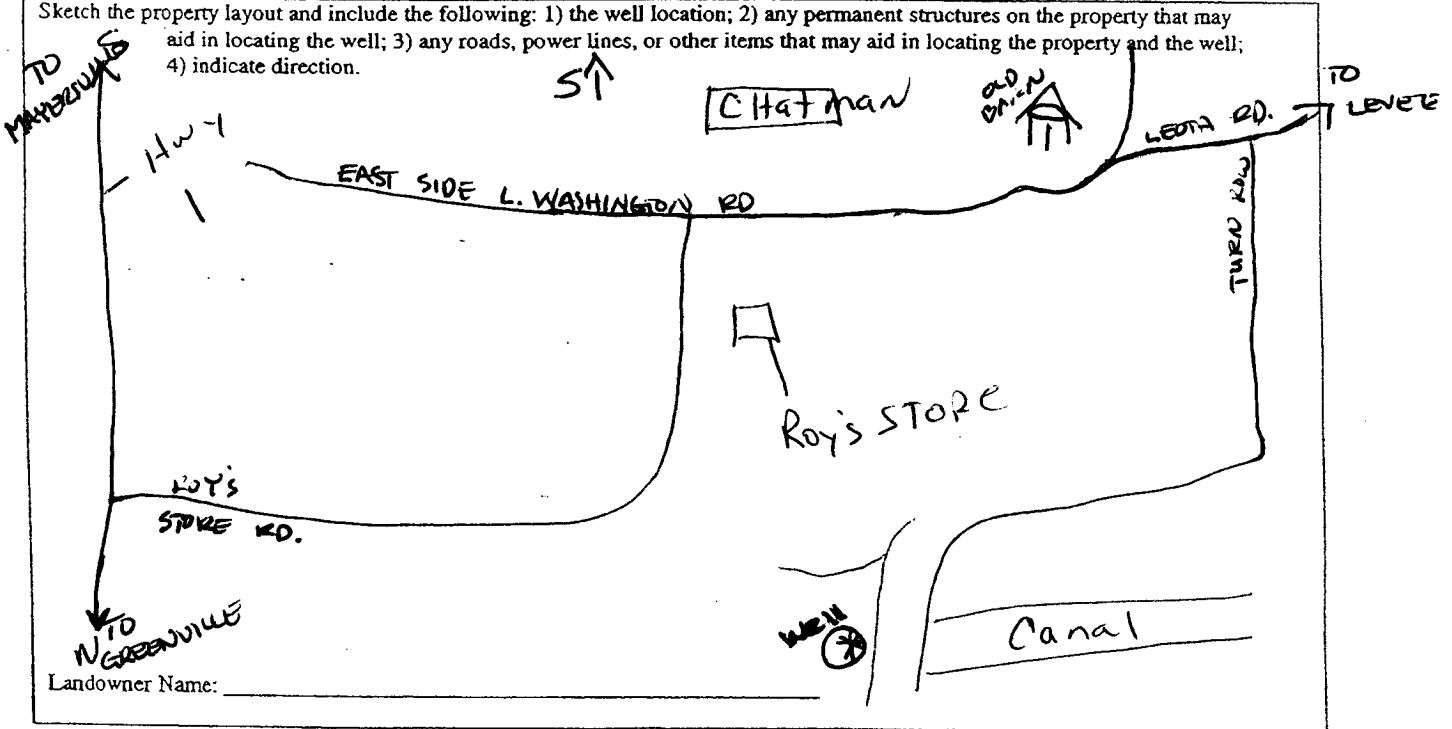 Sketch the property layout and include the following: 1) the well location; 2) any permanent structures on the property that may
aid in locating the well; 3) any roads, power lines, or other items that may aid in locating the property and the well;
4) indicate direction.
TO
S
S↑
CHatman
OLD
TO
LEVEE
LEOTA RD.
HWY
1
EAST SIDE L. WASHINGTON RD
TURN ROW
Roy's STORE
ROY'S
STORE RD.
Well
Canal
TO
N GREENVILLE
Landowner Name: